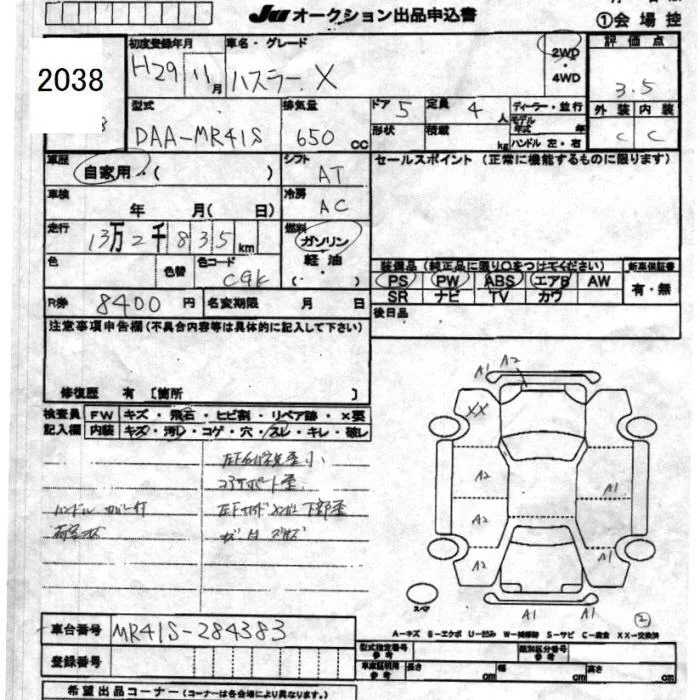 JU オークション出品申込書
①会場控
2038
初度登録年月
H29 11月
車名・グレード
ハスラー X
2WD
・
4WD
評価点
3.5
外装 内装
C C
型式
DAA-MR41S
排気量
650 cc
ドア 5
定員 4 人
形状
積載 kg
ディーラー・並行
モデル
年式 年
ハンドル 左・右
車歴
自家用・( )
シフト
AT
セールスポイント (正常に機能するものに限ります)
車検
年 月( 日)
冷房
AC
走行
13万2千835km
燃料
ガソリン
軽油
( ・ )
色
色替
色コード
C9K
装備品 (純正品に限り○をつけてください)
PS PW ABS エアB AW
SR ナビ TV カワ
新車保証書
有・無
R券 8400円
名変期限 月 日
後日品
注意事項申告欄(不具合内容等は具体的に記入して下さい)
修復歴 有 〔箇所 〕
検査員
記入欄
FW キズ・飛石・ヒビ割・リペア跡・×要
内装 キズ・汚れ・コゲ・穴・スレ・キレ・破レ
コアサポート歪
ハンドル カバー付
A1 A2
XX
A2
A1
A2
A2
A1
A1 A1
スペア
②
A-キズ B-エクボ U-凹み W-補修跡 S-サビ C-腐食 XX-交換済
車台番号 MR41S-284383
登録番号
型式指定番号
参考
類別区分番号
参考
車庫証明用
参考
長さ cm 幅 cm 高さ cm
希望出品コーナー (コーナーは各会場により異なります。)